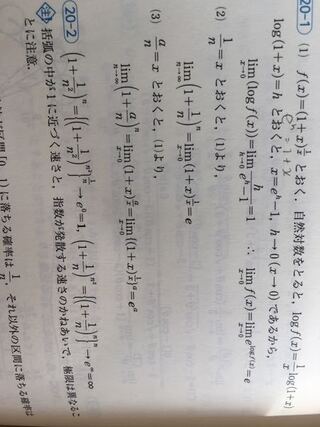 20-1 (1) f(x)=(1+x)^{1/x} とおく。自然対数をとると，log f(x)=1/x log(1+x)
e^h=1+x
log(1+x)=h とおくと，x=e^h−1，h→0 (x→0) であるから，
lim_{x→0}(log f(x))=lim_{h→0} h/(e^h−1)=1 ∴ lim_{x→0} f(x)=lim_{x→0} e^{log f(x)}=e
(2) 1/n=x とおくと，(1)より，
lim_{n→∞}(1+1/n)^n=lim_{x→0}(1+x)^{1/x}=e
(3) a/n=x とおくと，(1)より，
lim_{n→∞}(1+a/n)^n=lim_{x→0}(1+x)^{a/x}=lim_{x→0}{(1+x)^{1/x}}^a=e^a
20-2 (1+1/n²)^n={(1+1/n²)^{n²}}^{1/n}→e^0=1，(1+1/n)^{n²}={(1+1/n)^n}^n→e^∞=∞
注 括弧の中が1に近づく速さと，指数が発散する速さのかねあいで，極限は異なるこ
とに注意．
区間[0, 1)に落ちる確率は 1/n，それ以外の区間に落ちる確率は